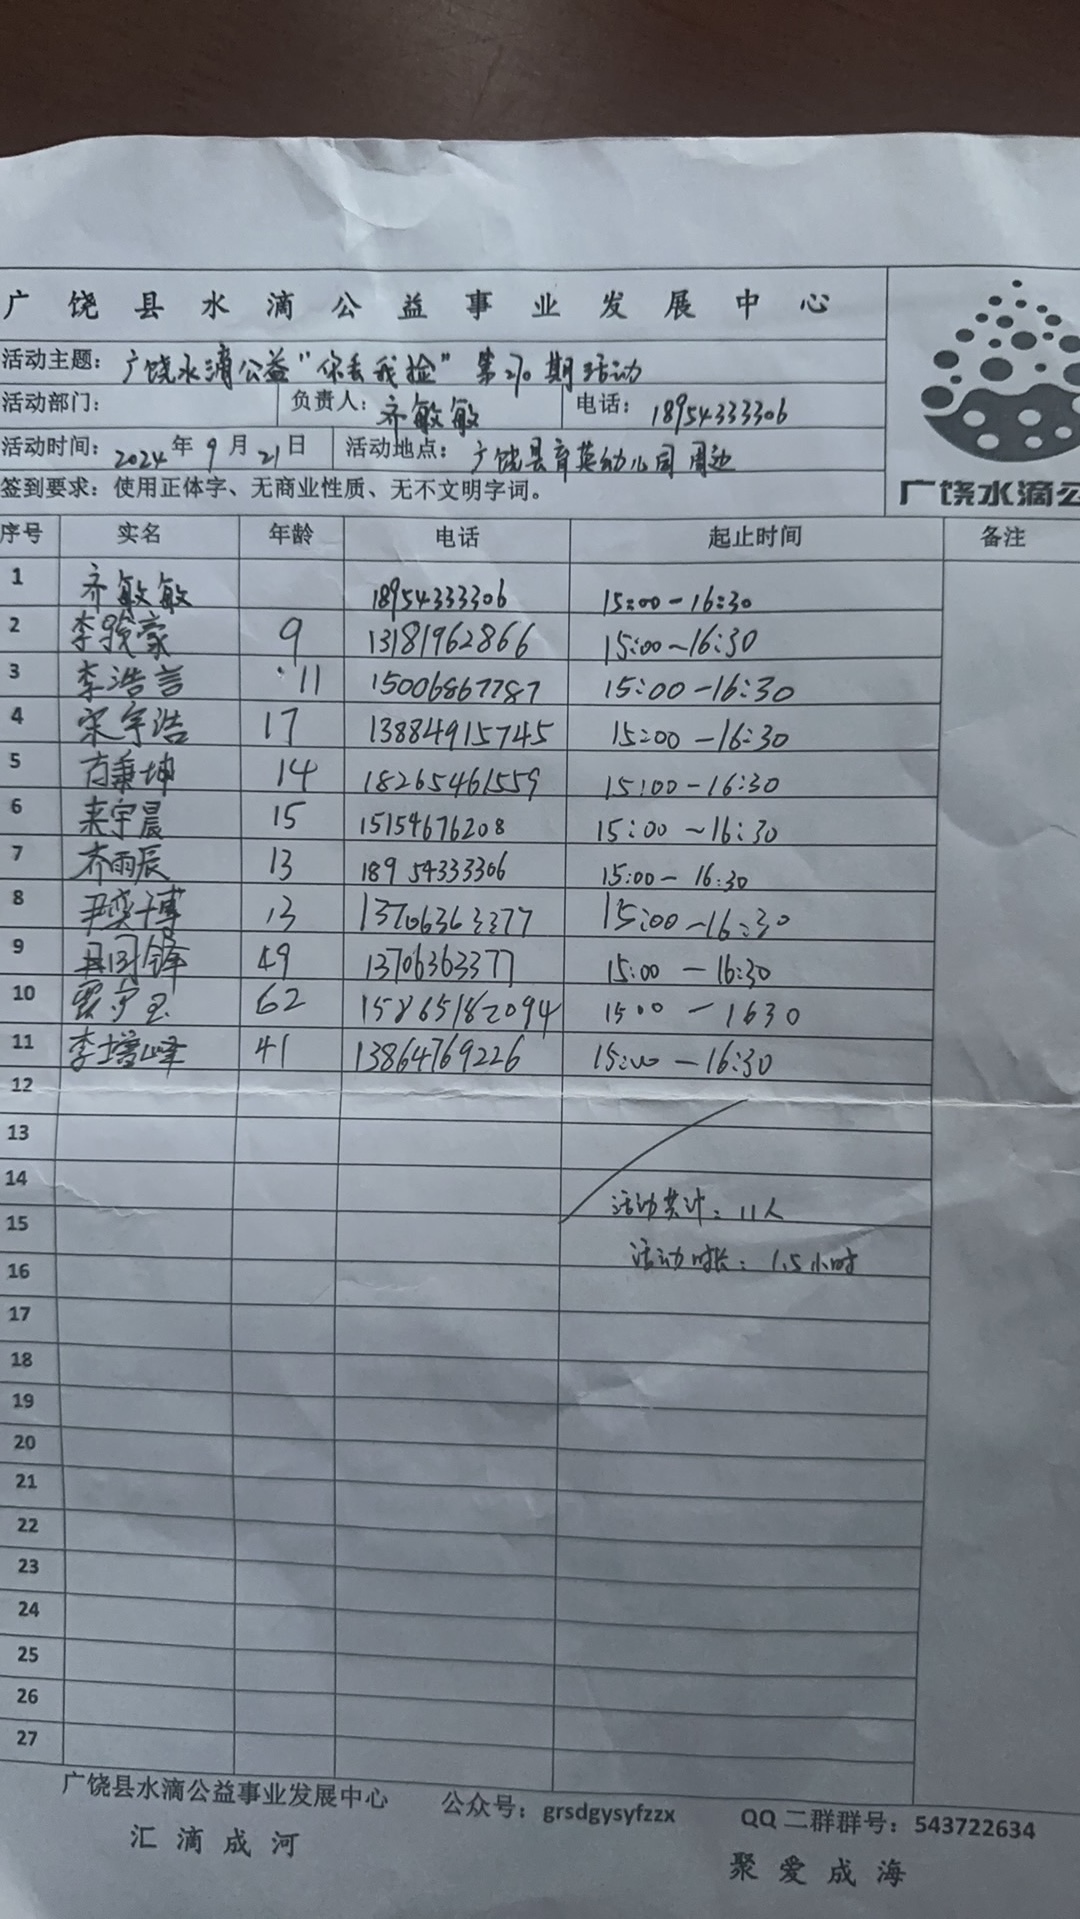 广饶县水滴公益事业发展中心
活动主题：广饶水滴公益“你丢我捡”第270期活动
活动部门： 负责人：齐敏敏 电话：18954333306
活动时间：2024年9月21日 活动地点：广饶县育英幼儿园周边
签到要求：使用正体字、无商业性质、无不文明字词。
广饶水滴公
序号 实名 年龄 电话 起止时间 备注
1 齐敏敏 18954333306 15:00-16:30
2 李骏豪 9 13181962866 15:00~16:30
3 李浩言 11 15006867787 15:00-16:30
4 宋宇浩 17 13884915745 15:00-16:30
5 秉坤 14 18265461559 15:00-16:30
6 宇晨 15 15154676208 15:00~16:30
7 齐雨辰 13 18954333306 15:00-16:30
8 尹奕博 13 13706363377 15:00~16:30
9 49 13706363377 15:00-16:30
10 62 15865182094 15:00-1630
11 李增峰 41 13864769226 15:00-16:30
12
13
14
活动共计：11人
15
活动时长：1.5小时
16
17
18
19
20
21
22
23
24
25
26
27
广饶县水滴公益事业发展中心 公众号：grsdgysyfzzx QQ二群群号：543722634
汇滴成河 聚爱成海